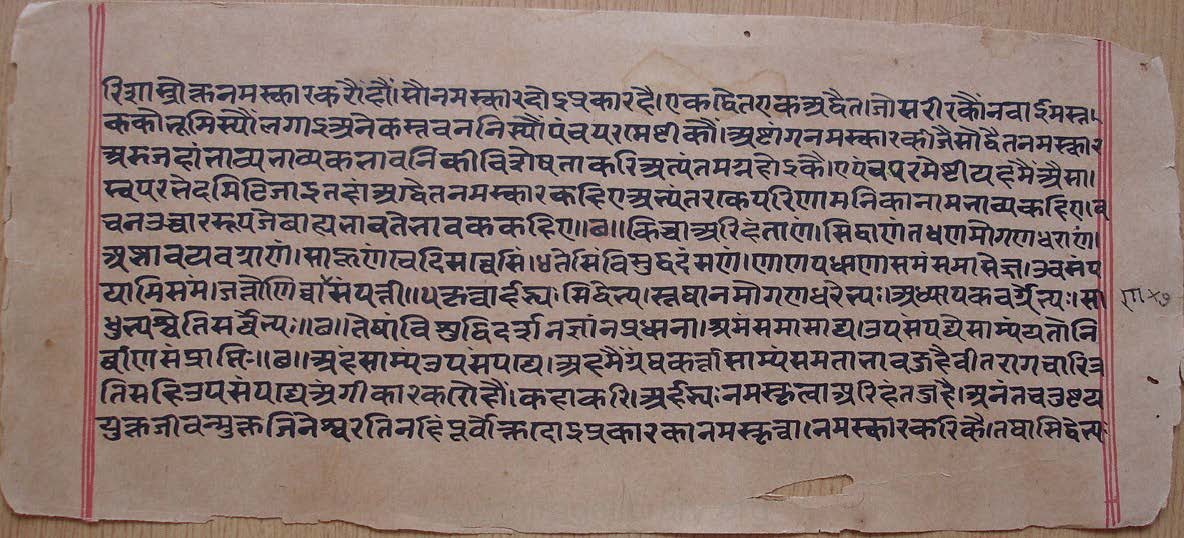 रिशास्त्रोक्तनमस्कारकरौंहौं।सोनमस्कारदोइप्रकारहै।एकद्वैतएकअद्वैत।जोसरीरकौंनवाइमस्त।
ककौंभूमिस्यौंलगाइअनेकस्तवननिस्यौंपंचपरमेष्टीकौं।अष्टांगनमस्कारकीजैसोद्वैतनमस्कार
अरुजहांभाव्यभावकभावनिकीविशेषताकरिअत्यंतमग्नहोइकै।एपंचपरमेष्टीयहमैंअैसा।
स्वपरभेदमिटिजाइतहांअद्वैतनमस्कारकहिएअभ्यंतरकपरिणामनिकानामभाव्यकहिए।व
चनउच्चाररूपजेबाह्यभावतेभावककहिए॥ब॥किच्चाअरिहंताणं।सिद्धाणंतधणमोगणधराणं।
अझ्झावयवग्गाणं।साहूणंचेदिसव्वेसिं।धतेसिंविसुद्धदंसणं।णाणपधाणासमंसमासेज्ज।उवसंप
यामिसंम।जत्तोणिव्वाँसंपत्ती॥५कृत्वार्हद्भ्यः।सिद्धेभ्य।स्तथानमोगणधरेभ्यः।अध्यापकवर्गेभ्यः।सा
धुभ्यश्चेतिसर्वेभ्यः॥ब।तेषांविशुद्धिदर्शनज्ञांनप्रधाना।श्रमंसमासाद्य।उपसंपद्येसाम्यंयतोनि
र्वाणसंप्राप्तिः॥ब॥अहंसाम्पउपसंपाद्य।अहमैंग्रंथकर्त्तासाम्यंसमताभावजुहैवीतरागचारित्र
तिसहिउपसंपाद्यअंगीकारकरोंहौं।कहाकरि।अर्हद्भ्यःनमस्कृत्वाअरिहंतजुहै।अनंतचतुष्टय
युक्तजीवन्मुक्तजिनेश्वरतिनहिंपूर्वोक्तदोइप्रकारकानमस्कृत्वा।नमस्कारकरिकै।तथासिद्धेभ्य